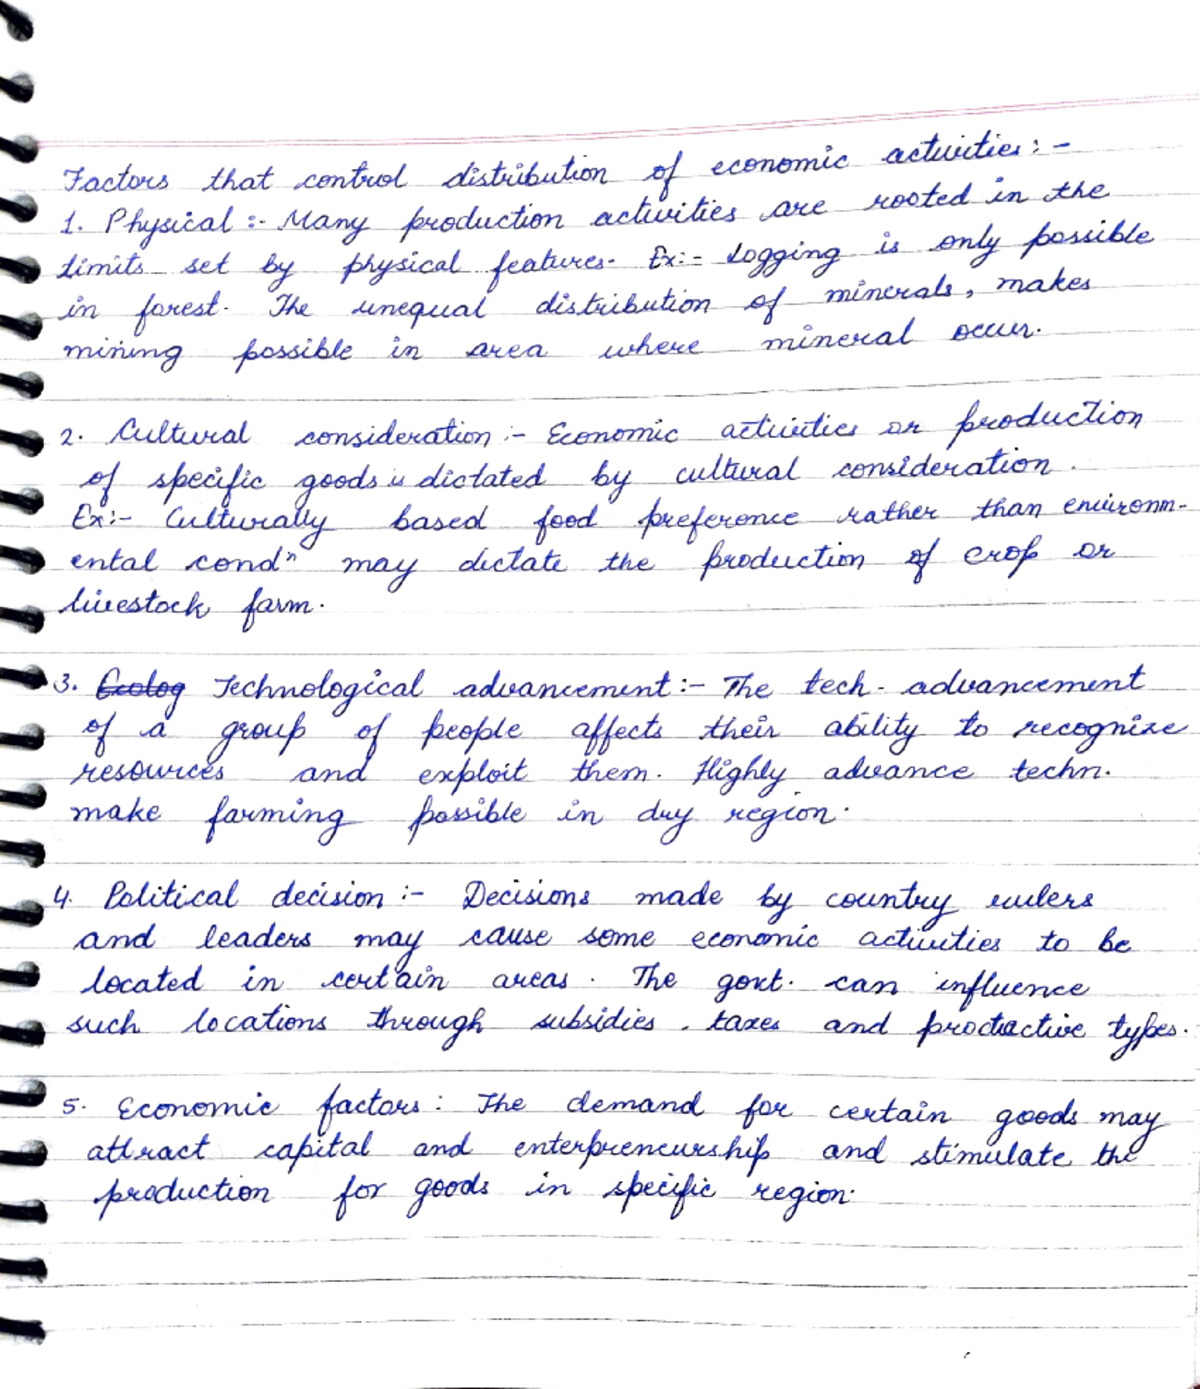 Factors that control distribution of economic activities:-
1. Physical :- Many production activities are rooted in the
limits set by physical features. Ex:- Logging is only possible
in forest. The unequal distribution of minerals, makes
mining possible in area where mineral occur.
2. Cultural consideration :- Economic activities or production
of specific goods is dictated by cultural consideration.
Ex:- Culturally based food preference rather than environm-
ental condⁿ may dictate the production of crop or
livestock farm.
3. Ecolog Technological advancement:- The tech. advancement
of a group of people affects their ability to recognize
resources and exploit them. Highly advance techn.
make farming possible in dry region.
4. Political decision :- Decisions made by country rulers
and leaders may cause some economic activities to be
located in certain areas. The govt. can influence
such locations through subsidies, taxes and types.
5. Economic factors: The demand for certain goods may
attract capital and enterpreneurship and stimulate the
production for goods in specific region.